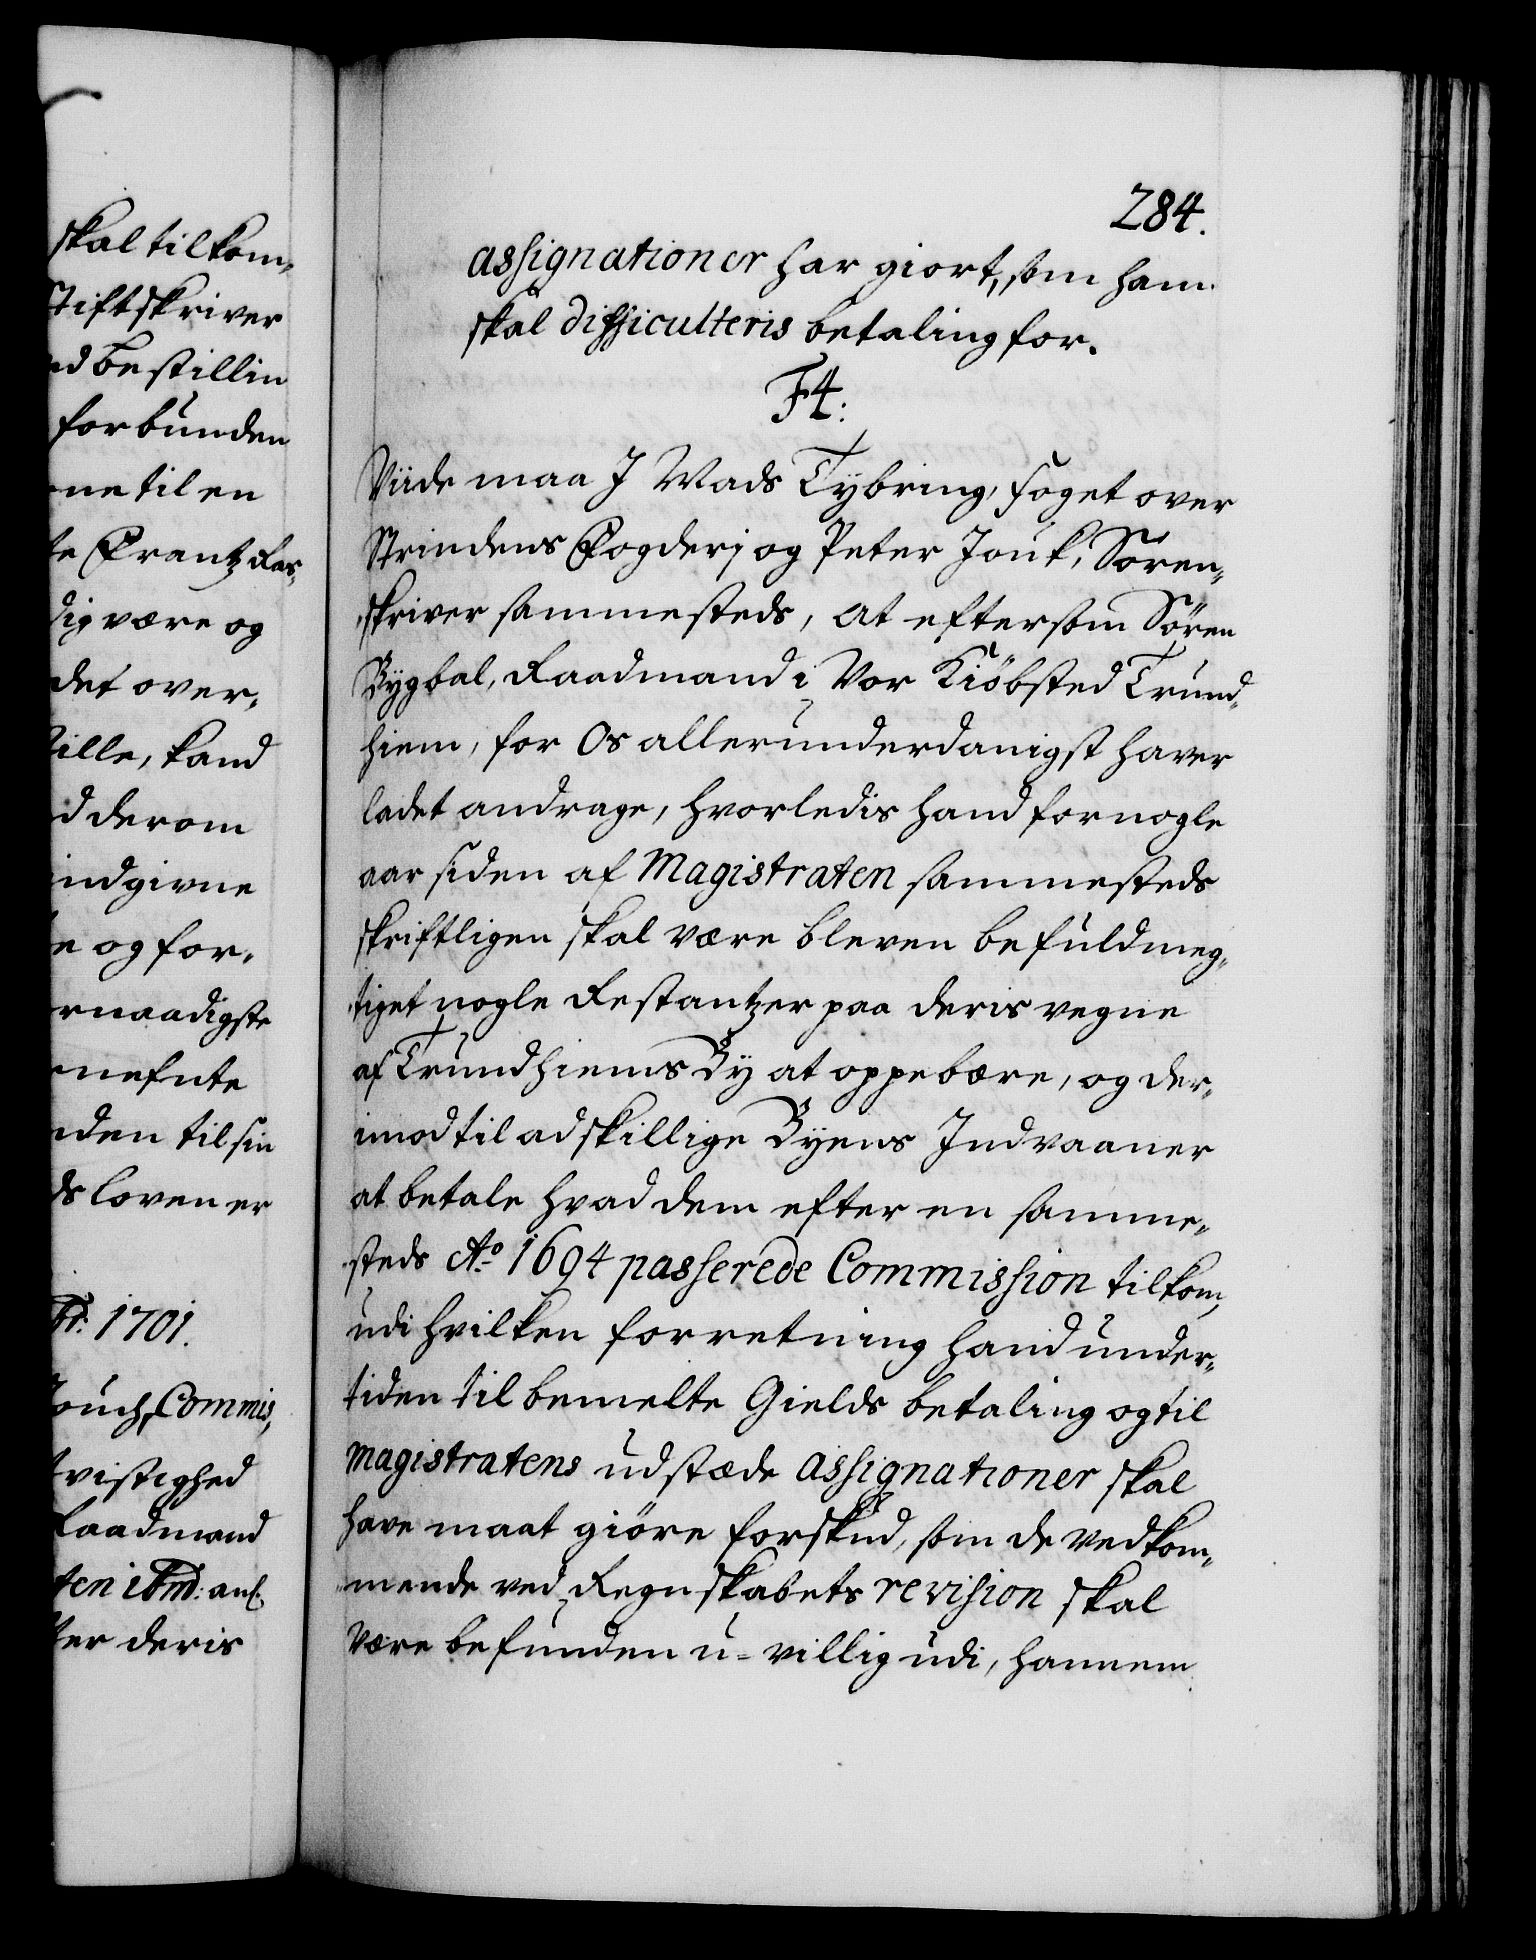 skal tilkom,
Stiftskriver
bestillin
forbunden
ne til en
Frantz
dig være og
det over,
ille, kand
d derom
indgivne
e og for,
rnaadigste
nefnte
nden til sin
ds loven er
Fr. 1701.
ouch, Commis,
tvistighed
Raadmand
ten ibmd: anl.
ter deris
284.
assignationer har giort, som ham
skal difficulteris betaling for.
F4.
Viide maa J Mads Tybring, foget over
Strindens Fogderj og Peter Jouk, Sören,
skriver sammesteds, at eftersom Sören
Bygbal, Raadmand i Vor Kiöbsted Trund,
hiem, for Os allerunderdanigst haver
ladet andrage, hvorledis hand for nogle
aar siden af Magistraten sammesteds
skriftligen skal være bleven befuldmeg,
tiget nogle Restantzer paa deris vegne
af Trundhiems By at oppebære, og der,
imod til adskillige Byens Indvaaner
at betale hvad dem efter en samme,
steds Ao. 1694 passerede Commission tilkom,
udi hvilken forretning hand under,
tiden til bemelte Gields betaling og til
Magistratens udstæde assignationer skal
have maat giöre forskud, som de vedkom,
mende ved Regnskabets revision skal
være befunden u-villig udi, hannem